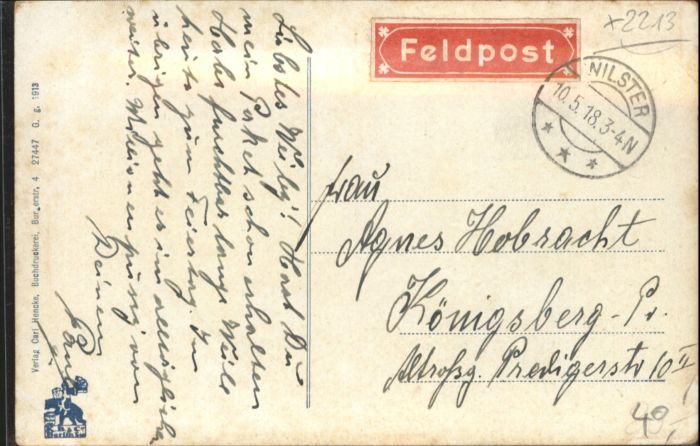 Liebes Weibi! Hast Du
mein Paket schon erhalten
Habe furchtbar lange Weile
heute zum Feiertag. Im
übrigen geht es im
weiter. Millionen von
Deinem
Paul
Feldpost
×2213
NILSTER
10.5.18.3-4N
Frau
Agnes Hobracht
Königsberg-Pr.
Altroßg. Predigerstr 10 II
40,-
Verlag Carl Hencke, Buchdruckerei, Burgerstr. 4 27447 G. g. 1913